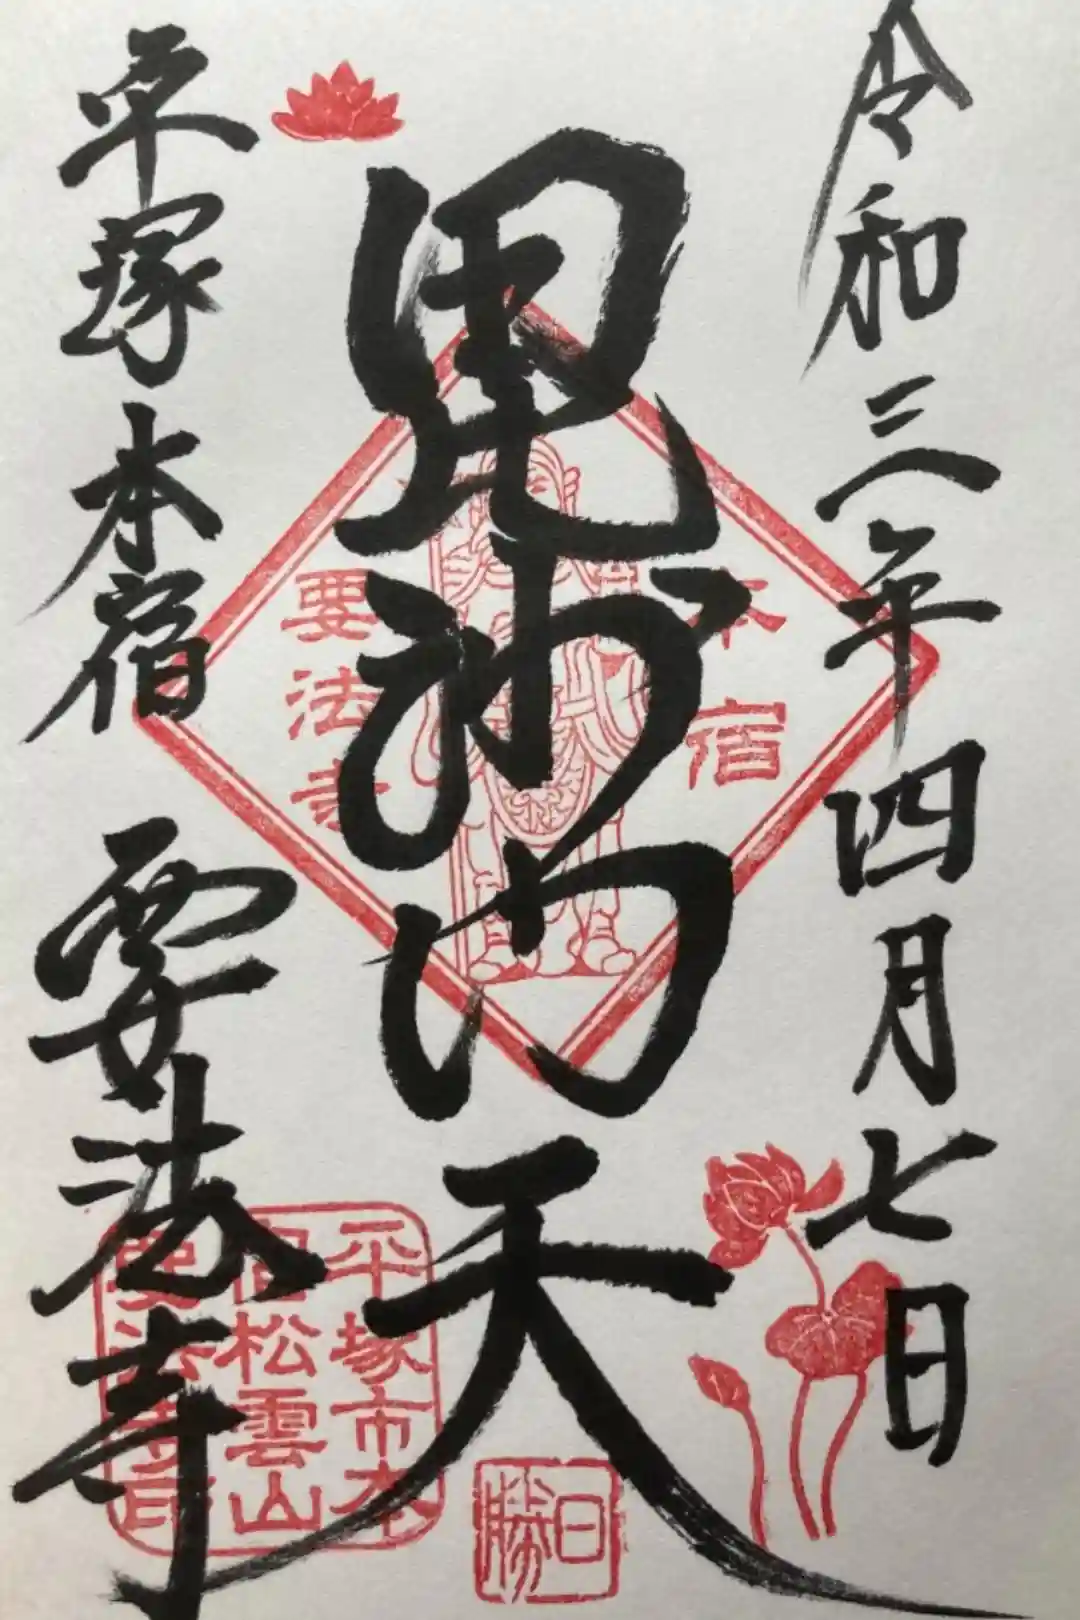 令和三年四月七日
毘沙門天
本宿
要法寺
平塚本宿 要法寺
平塚市本
宿松雲山
要法寺印
日勝